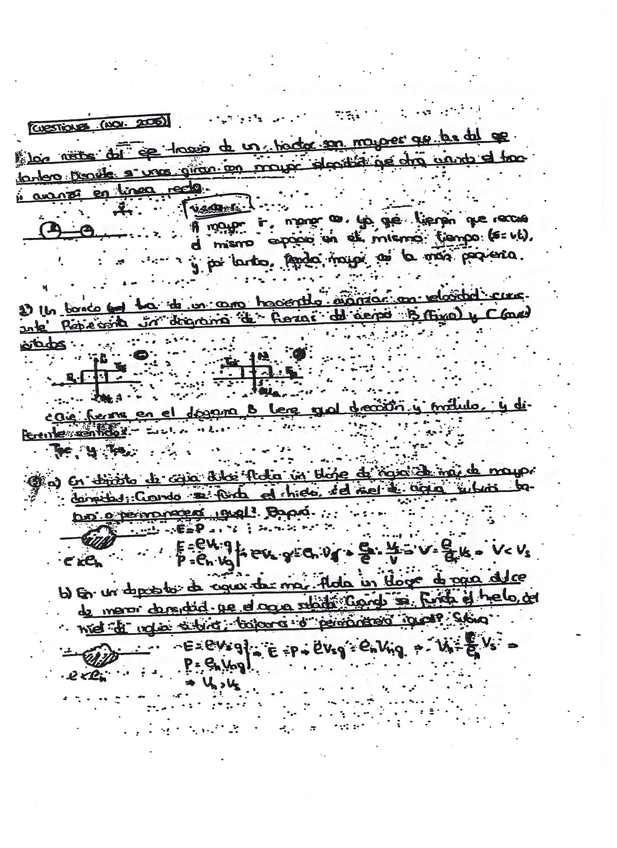 CUESTIONES (NOV. 2005)
Las ruedas del eje trasero de un tractor son mayores que las del eje
delantero. Decide si unas giran con mayor velocidad que otra cuando el trac-
avanza en línea recta.
A mayor r, menor ω, ya que tienen que recorrer
el mismo espacio en el mismo tiempo (s=vt),
y por tanto, tendrá mayor ω la más pequeña.
2) Un burro tira de un carro haciéndolo avanzar con velocidad cons-
tante. Representa un diagrama de fuerzas del cuerpo B (burro) y C (carro)
aislados
¿Qué fuerzas en el diagrama B tiene igual dirección y módulo, y di-
ferente sentido?
y
a) En depósito de agua dulce flota un bloque de agua de mar de mayor
densidad. Cuando se funda el hielo, ¿el nivel de agua subirá, ba-
jará o permanecerá igual? Bajará.
E=P
E=ρVs·g
P=ρh·Vg
V<Vs
b) En un depósito de agua de mar flota un bloque de agua dulce
de menor densidad que el agua salada. Cuando se funda el hielo, ¿el
nivel de agua subirá, bajará o permanecerá igual? Subirá
E=ρVsg
P=ρhVhg